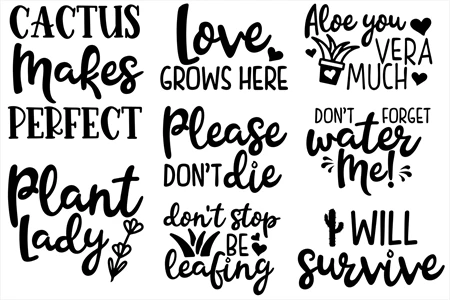 CACTUS
Makes
PERFECT
Plant
Lady
Love
GROWS HERE
Please
DON'T die
don't stop
BE
leafing
Aloe you
VERA
MUCH
DON'T FORGET
water
Me!
I WILL
survive